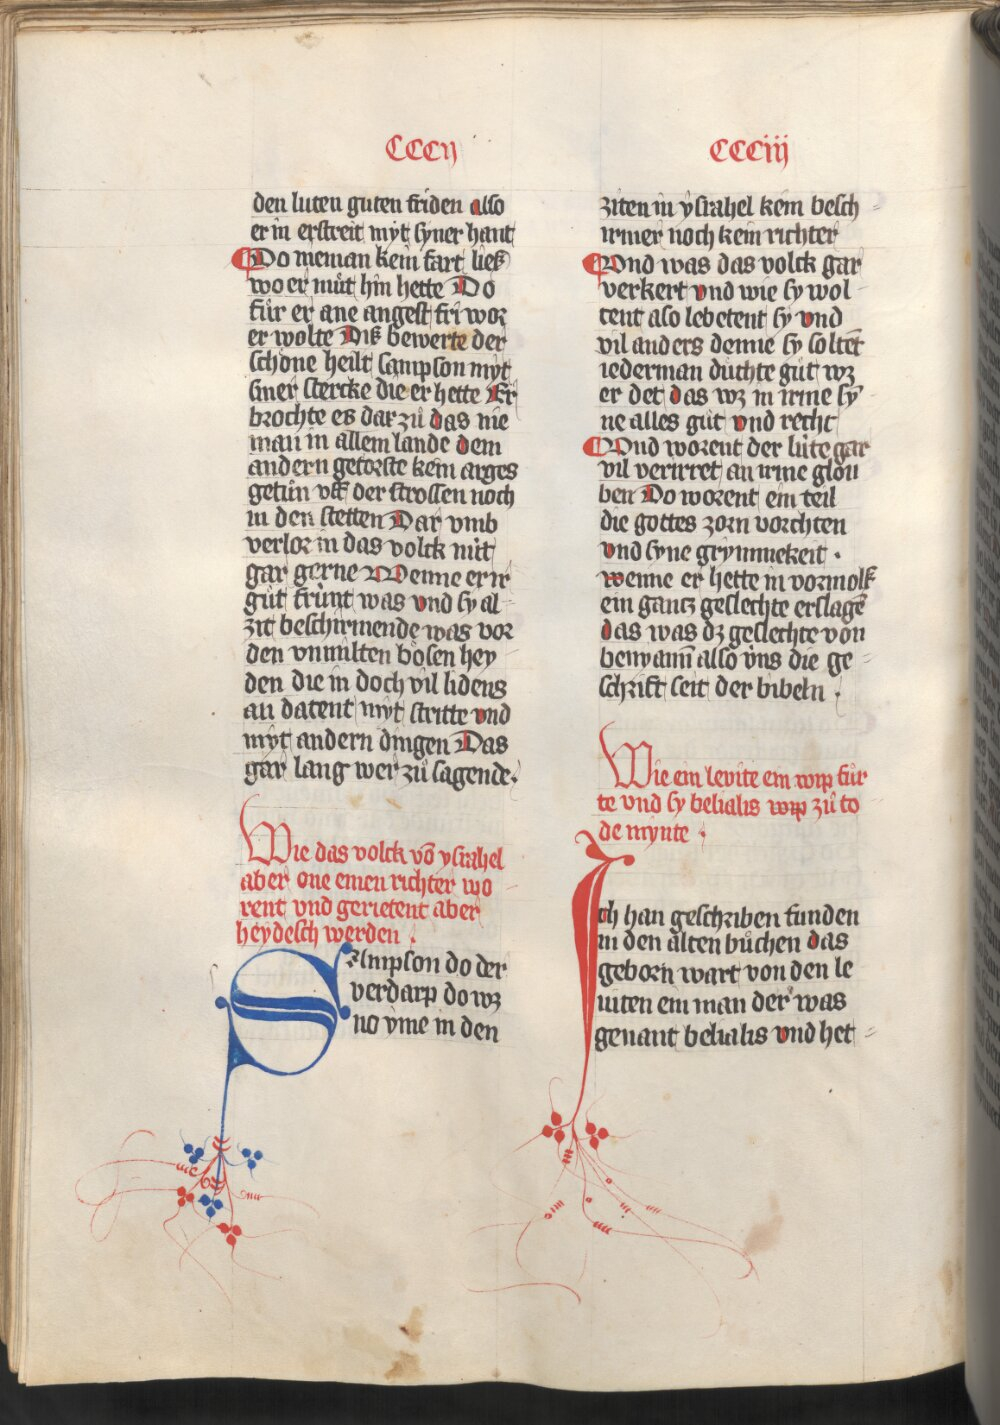 CCCij
den luten guten friden also
er in erstreit myt syner hant
Do nieman kein fart ließ
wo er můt hin hette Do
fůr er ane angest fri wor
er wolte Diß bewerte der
schöne heilt sampson myt
siner stercke die er hette Er
brochte es dar zů das nie
man in allem lande dem
andern getorste kein arges
getůn vff der strossen noch
in den stetten Dar vmb
verlor in das volck nüt
gar gerne Wenne er ir
gůt frünt was vnd sy al
zit beschirmende was vor
den vnmilten bösen hey
den die in doch vil lidens
an datent myt stritte vnd
myt andern dingen Das
gar lang wer zů sagende.
Wie das volck vō ysrahel
aber one einen richter wo
rent vnd gerietent aber
heydesch werden .
Sampson do der
verdarp do wz
no yme in den
CCCiij
ziten in ysrahel kein besch
irmer noch kein richter
Vnd was das volck gar
verkert vnd wie sy wol
tent aso lebetent sy vnd
vil anders denne sy soltēt
iederman duchte gůt wz
er det das wz in irme sy
ne alles gůt vnd recht
Vnd worent der lüte gar
vil verirret an irme glou
ben Do worent ein teil
die gottes zorn vorchten
vnd syne grymmekeit .
wenne er hette in vormolß
ein gantz geslechte erslagē
das was dz geslechte von
benyamī also vns die ge
schrift seit der bibeln .
Wie ein levite ein wip für
te vnd sy belialis wip zů to
de mynte .
Ich han geschriben funden
in den alten bůchen das
geborn wart von den le
uiten ein man der was
genant belialis vnd het